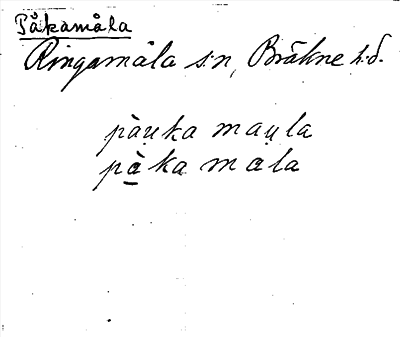 Påkamåla
Ringamåla s:n, Bräkne h.d.
pàu̯ka mau̯la
pà̠ka mala